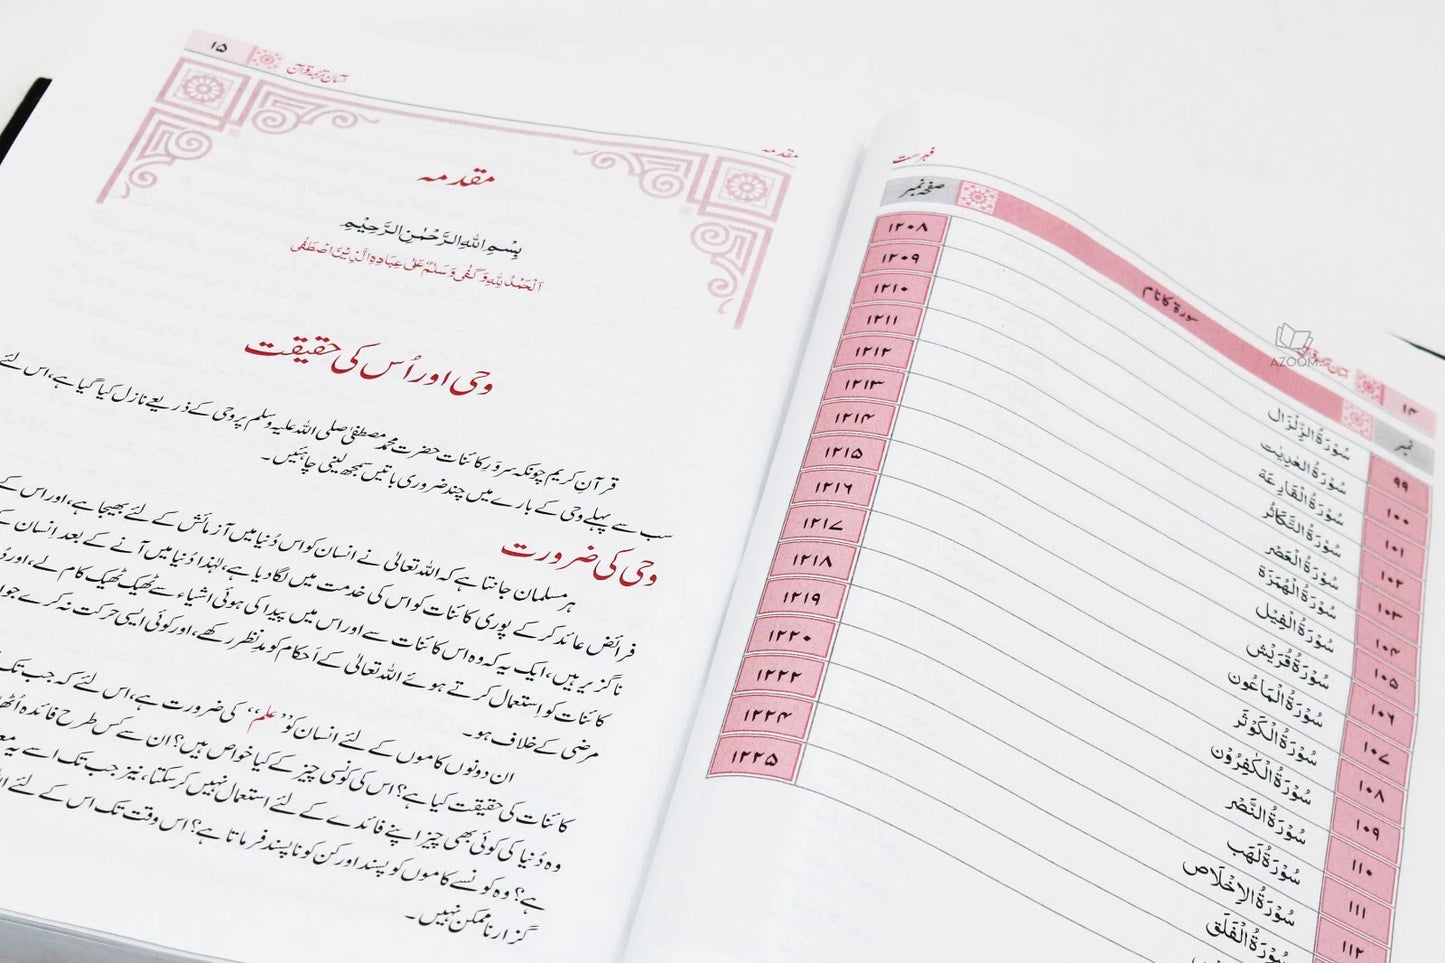 فہرست
۱۴
آسان ترجمۂ قرآن
نمبر
سورۃ کا نام
صفحہ نمبر
۹۹
سُوْرَۃُ الزِّلْزَال
۱۲۰۸
۱۰۰
سُوْرَۃُ الْعٰدِیٰت
۱۲۰۹
۱۰۱
سُوْرَۃُ الْقَارِعَة
۱۲۱۰
۱۰۲
سُوْرَۃُ التَّکَاثُر
۱۲۱۱
۱۰۳
سُوْرَۃُ الْعَصْر
۱۲۱۲
۱۰۴
سُوْرَۃُ الْهُمَزَة
۱۲۱۳
۱۰۵
سُوْرَۃُ الْفِیْل
۱۲۱۴
۱۰۶
سُوْرَۃُ قُرَیْش
۱۲۱۵
۱۰۷
سُوْرَۃُ الْمَاعُوْن
۱۲۱۶
۱۰۸
سُوْرَۃُ الْکَوْثَر
۱۲۱۷
۱۰۹
سُوْرَۃُ الْکٰفِرُوْن
۱۲۱۸
۱۱۰
سُوْرَۃُ النَّصْر
۱۲۱۹
۱۱۱
سُوْرَۃُ لَهَب
۱۲۲۰
۱۱۲
سُوْرَۃُ الْاِخْلَاص
۱۲۲۲
سُوْرَۃُ الْفَلَق
۱۲۲۴
۱۲۲۵
AZOOM
مقدمہ
آسان ترجمۂ قرآن
۱۵
مقدمہ
بِسْمِ اللهِ الرَّحْمٰنِ الرَّحِیْمِ
اَلْحَمْدُ لِلّٰهِ وَکَفٰی وَسَلٰمٌ عَلٰی عِبَادِهِ الَّذِیْنَ اصْطَفٰی
وحی اور اُس کی حقیقت
قرآنِ کریم چونکہ سروَرِ کائنات حضرت محمد مصطفیٰ صلی اللہ علیہ وسلم پر وحی کے ذریعے نازل کیا گیا ہے، اس لئے
سب سے پہلے وحی کے بارے میں چند ضروری باتیں سمجھ لینی چاہئیں۔
وحی کی ضرورت
ہر مسلمان جانتا ہے کہ اللہ تعالیٰ نے انسان کو اس دُنیا میں آزمائش کے لئے بھیجا ہے، اور اس کے
فرائض عائد کر کے پوری کائنات کو اس کی خدمت میں لگا دیا ہے، لہٰذا دُنیا میں آنے کے بعد انسان کے
ناگزیر ہیں، ایک یہ کہ وہ اس کائنات سے اور اس میں پیدا کی ہوئی اشیاء سے ٹھیک ٹھیک کام لے، اور
کائنات کو استعمال کرتے ہوئے اللہ تعالیٰ کے اَحکام کو مدِّنظر رکھے، اور کوئی ایسی حرکت نہ کرے جو
مرضی کے خلاف ہو۔
ان دونوں کاموں کے لئے انسان کو ”علم“ کی ضرورت ہے، اس لئے کہ جب تک
کائنات کی حقیقت کیا ہے؟ اس کی کونسی چیز کے کیا خواص ہیں؟ ان سے کس طرح فائدہ
وہ دُنیا کی کوئی بھی چیز اپنے فائدے کے لئے استعمال نہیں کر سکتا، نیز جب تک اسے یہ
ہے؟ وہ کونسے کاموں کو پسند اور کن کو ناپسند فرماتا ہے؟ اس وقت تک اس کے لئے
گزارنا ممکن نہیں۔